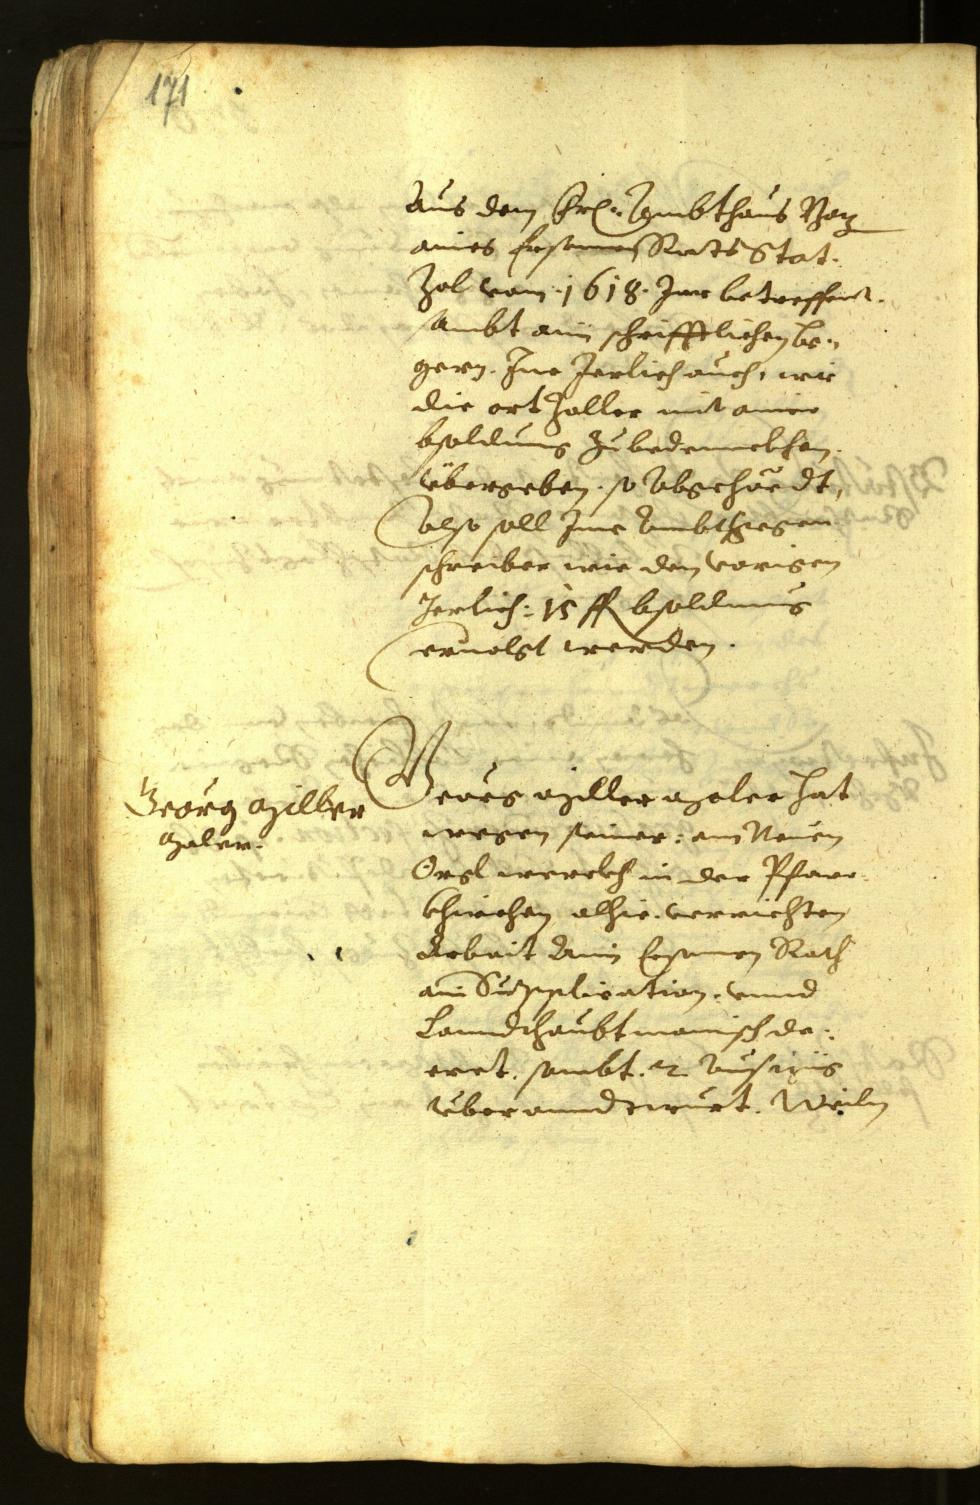 171
Aus dem Erl: Ambthaus Boz
aines Ersamen Rats Stat
Zol vom 1618. Jar betreffent.
sambt ain schrifftlichen be:
gern. Ine Jerlich auch, wie
die ort Zoller mit ainer
bsoldung zubedennckhen
übergeben. so Abschidt,
also soll Ime Ambt
schreiber wie dem vorigen
Jerlich: 15 fl bsoldung
ervolgt werden.
Georg Miller
Maler.
Georg Miller Maler hat
wegen seiner: am Neuen
Orgl werckh in der Pfarr
khirchen alhie verrichten
Arbait Ainem Ersamen Rath
ain Supplication. vnnd
Lanndthaubtmanisch de:
cret. sambt. 2. Auszüg
überanndtwurt. Weiln